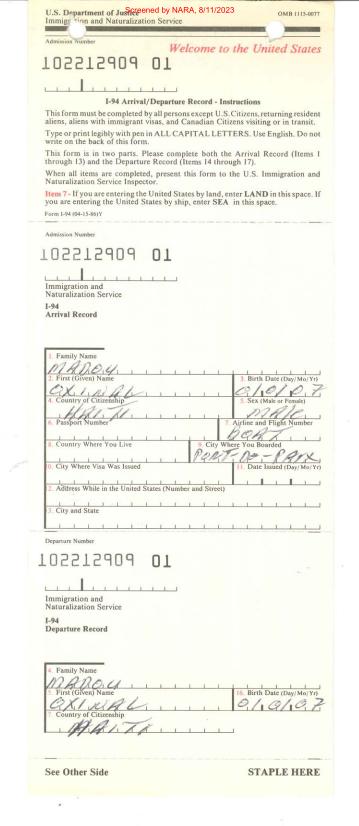 Screened by NARA, 8/11/2023
U.S. Department of Justice
Immigration and Naturalization Service
OMB 1115-0077
Admission Number
Welcome to the United States
102212909 01
I-94 Arrival/Departure Record - Instructions
This form must be completed by all persons except U.S. Citizens, returning resident
aliens, aliens with immigrant visas, and Canadian Citizens visiting or in transit.
Type or print legibly with pen in ALL CAPITAL LETTERS. Use English. Do not
write on the back of this form.
This form is in two parts. Please complete both the Arrival Record (Items 1
through 13) and the Departure Record (Items 14 through 17).
When all items are completed, present this form to the U.S. Immigration and
Naturalization Service Inspector.
Item 7 - If you are entering the United States by land, enter LAND in this space. If
you are entering the United States by ship, enter SEA in this space.
Form I-94 (04-15-86)Y
Admission Number
102212909 01
Immigration and
Naturalization Service
I-94
Arrival Record
1. Family Name
MADOU
2. First (Given) Name
3. Birth Date (Day/Mo/Yr)
OXINAL
010107
4. Country of Citizenship
5. Sex (Male or Female)
HAITI
MALE
6. Passport Number
7. Airline and Flight Number
BOAT
8. Country Where You Live
9. City Where You Boarded
PORT-DE-PAIX
10. City Where Visa Was Issued
11. Date Issued (Day/Mo/Yr)
2. Address While in the United States (Number and Street)
3. City and State
Departure Number
102212909 01
Immigration and
Naturalization Service
I-94
Departure Record
4. Family Name
MADOU
5. First (Given) Name
16. Birth Date (Day/Mo/Yr)
OXINAL
010107
7. Country of Citizenship
HAITI
See Other Side
STAPLE HERE